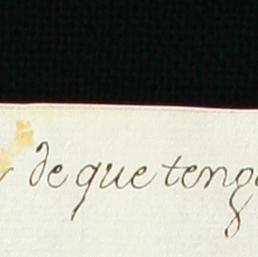 de que teng